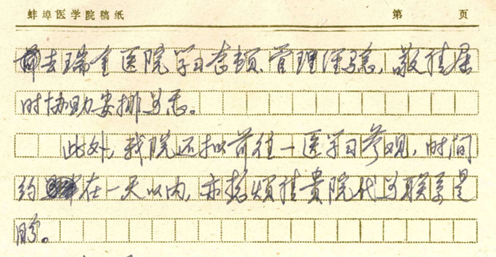 蚌埠医学院稿纸 第 页
前去瑞金医院学习查顿、管理经验,敬请届
时协助安排为感。
此外,我院还拟前往一医学习参观,时间
约在一天以内,亦拟烦请贵院代为联系是
盼。